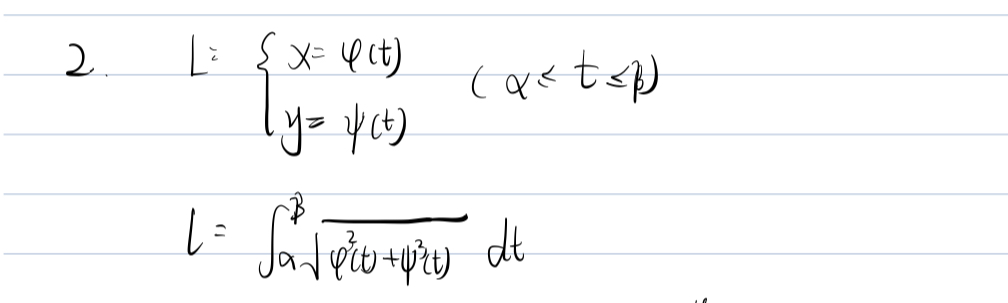 2. L: { x = φ(t)
y = ψ(t)
(α ≤ t ≤ β)
l = ∫_α^β √(φ²(t) + ψ²(t)) dt